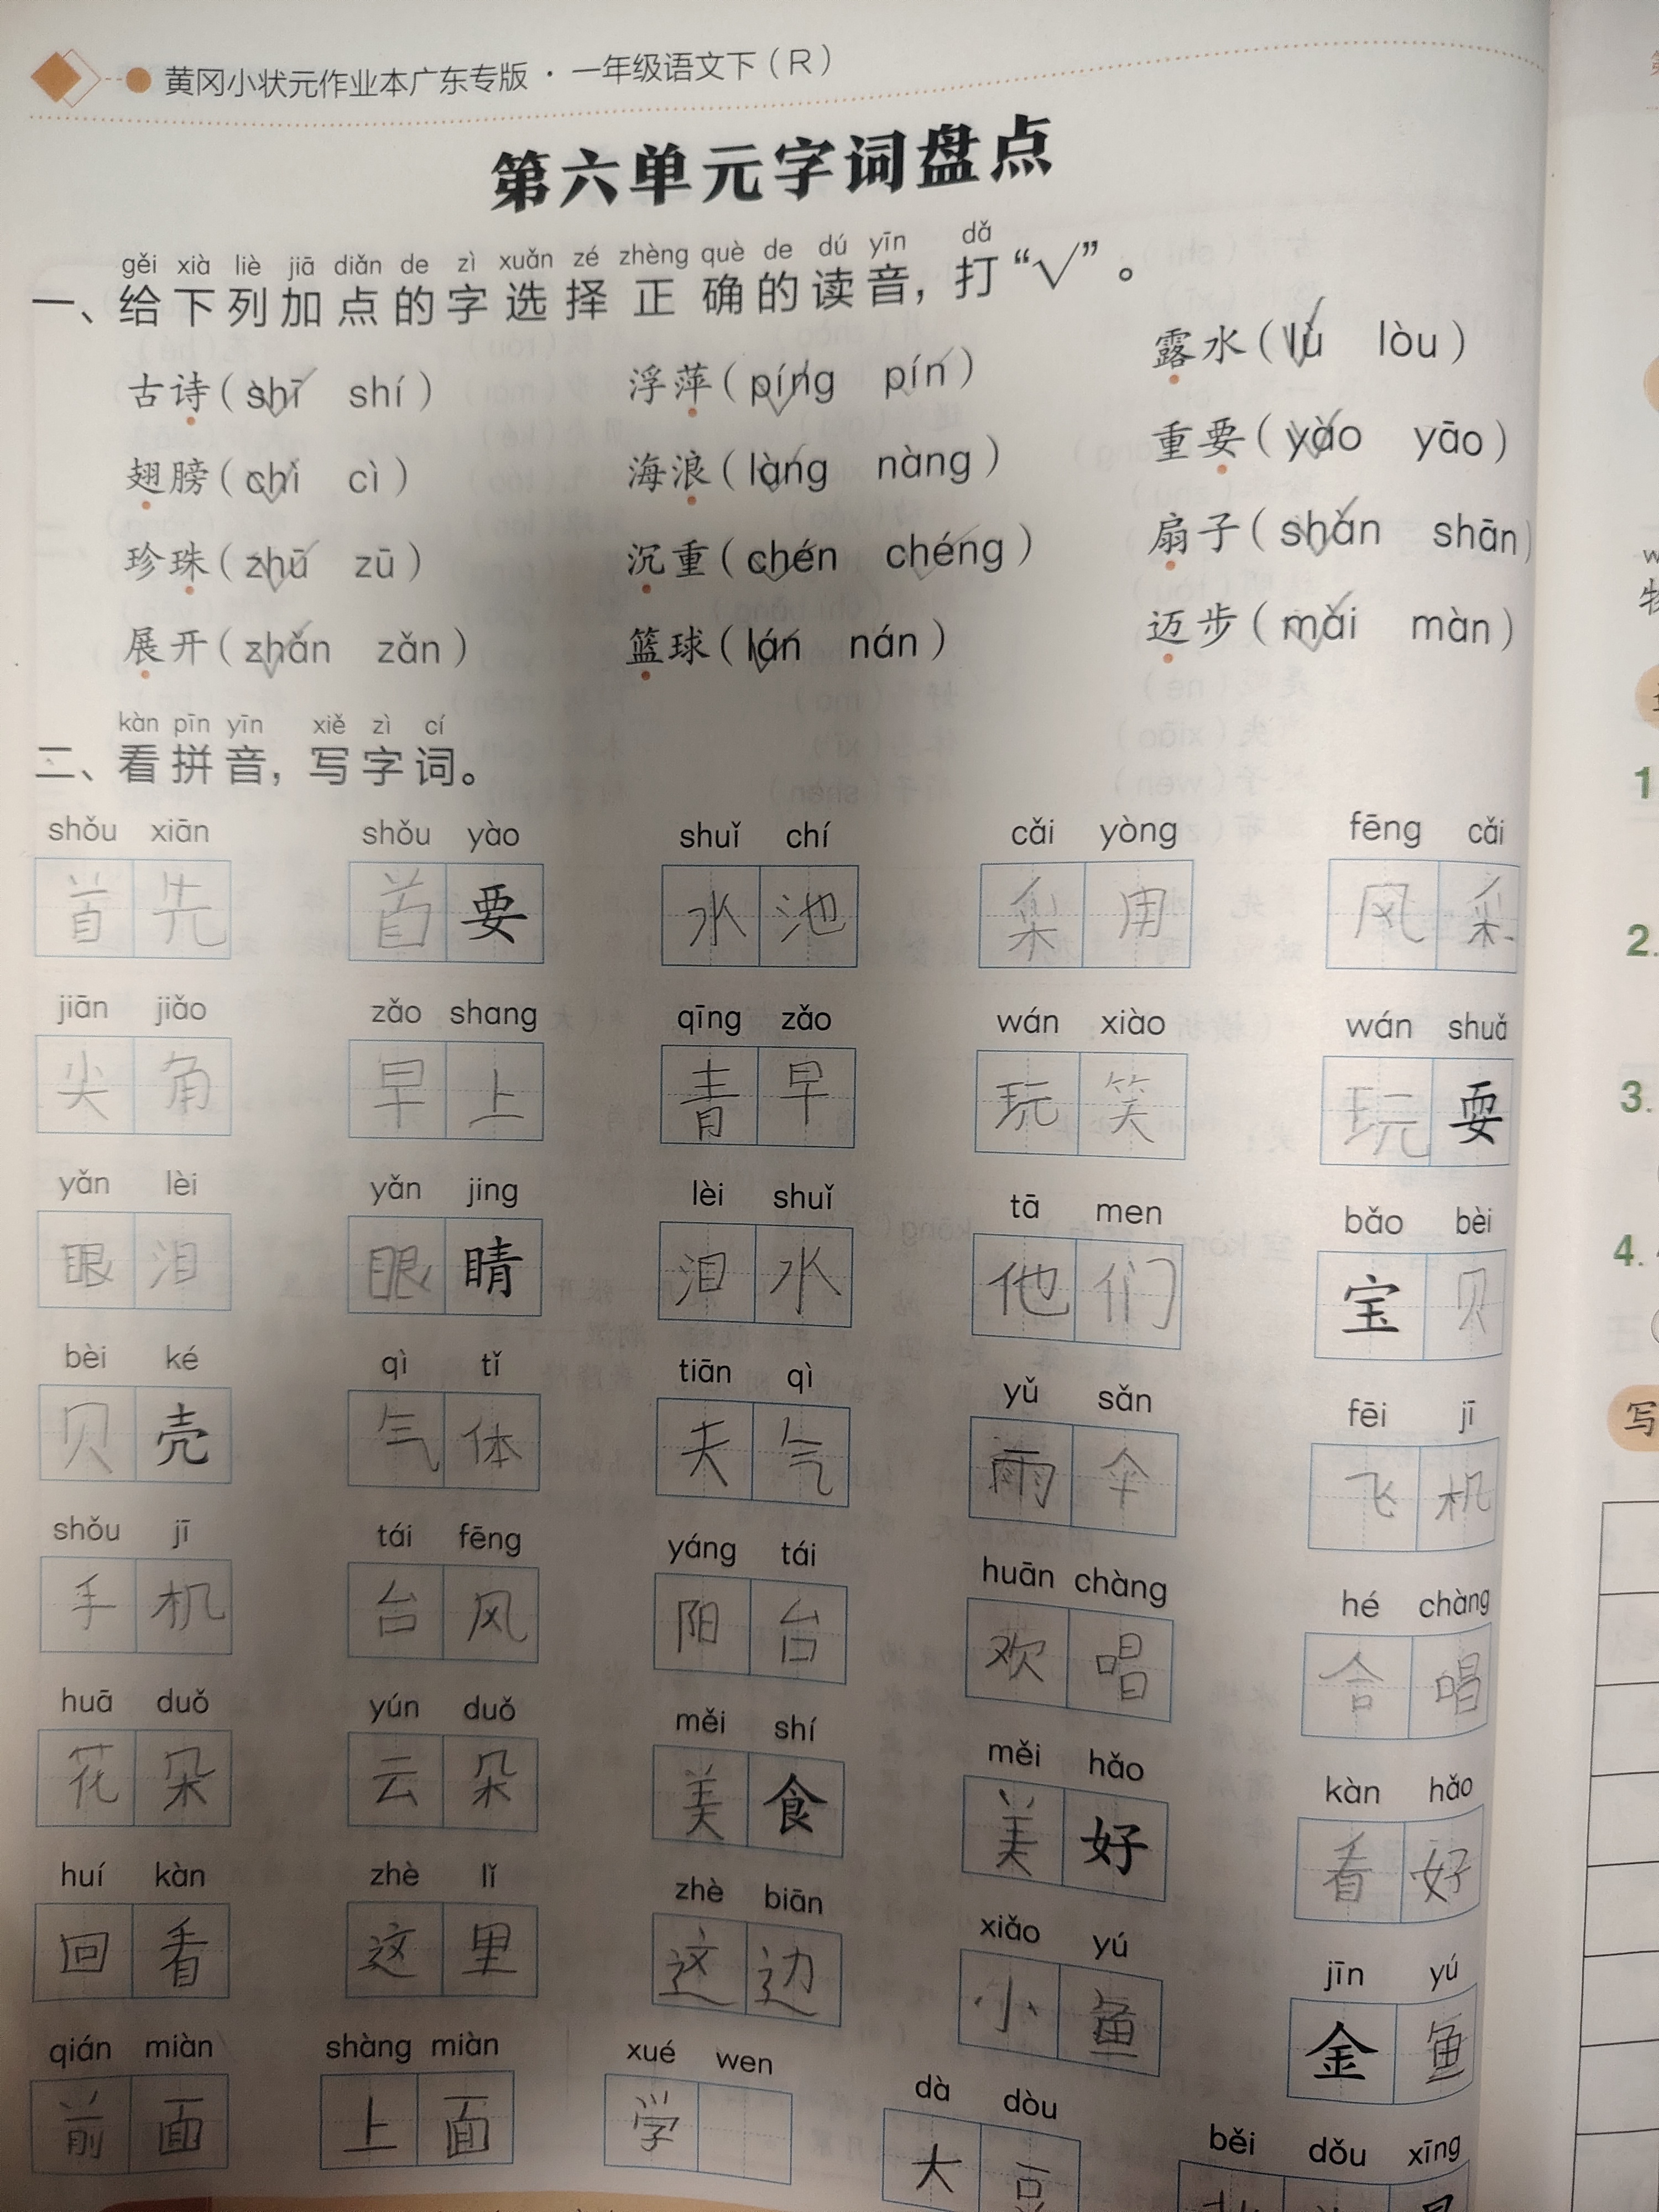 黄冈小状元作业本广东专版·一年级语文下（R）
第六单元字词盘点
gěi xià liè jiā diǎn de zì xuǎn zé zhèng què de dú yīn dǎ
一、给下列加点的字选择正确的读音，打“√”。
古诗（shī shí） 浮萍（píng pín） 露水（lù lòu）
翅膀（chì cì） 海浪（làng nàng） 重要（yào yāo）
珍珠（zhū zū） 沉重（chén chéng） 扇子（shàn shān）
展开（zhǎn zǎn） 篮球（lán nán） 迈步（mài màn）
kàn pīn yīn xiě zì cí
二、看拼音，写字词。
shǒu xiān shǒu yào shuǐ chí cǎi yòng fēng cǎi
首先 首要 水池 用 风
jiān jiǎo zǎo shang qīng zǎo wán xiào wán shuǎ
尖角 早上 青早 玩笑 玩耍
yǎn lèi yǎn jing lèi shuǐ tā men bǎo bèi
眼泪 眼睛 泪水 他们 宝贝
bèi ké qì tǐ tiān qì yǔ sǎn fēi jī
贝壳 气体 天气 雨伞 飞机
shǒu jī tái fēng yáng tái huān chàng hé chàng
手机 台风 阳台 欢唱 合唱
huā duǒ yún duǒ měi shí měi hǎo kàn hǎo
花朵 云朵 美食 美好 看好
huí kàn zhè lǐ zhè biān xiǎo yú jīn yú
回看 这里 这边 小鱼 金鱼
qián miàn shàng miàn xué wen dà dòu běi dǒu xīng
前面 上面 学 大
1
2.
3.
4.
写